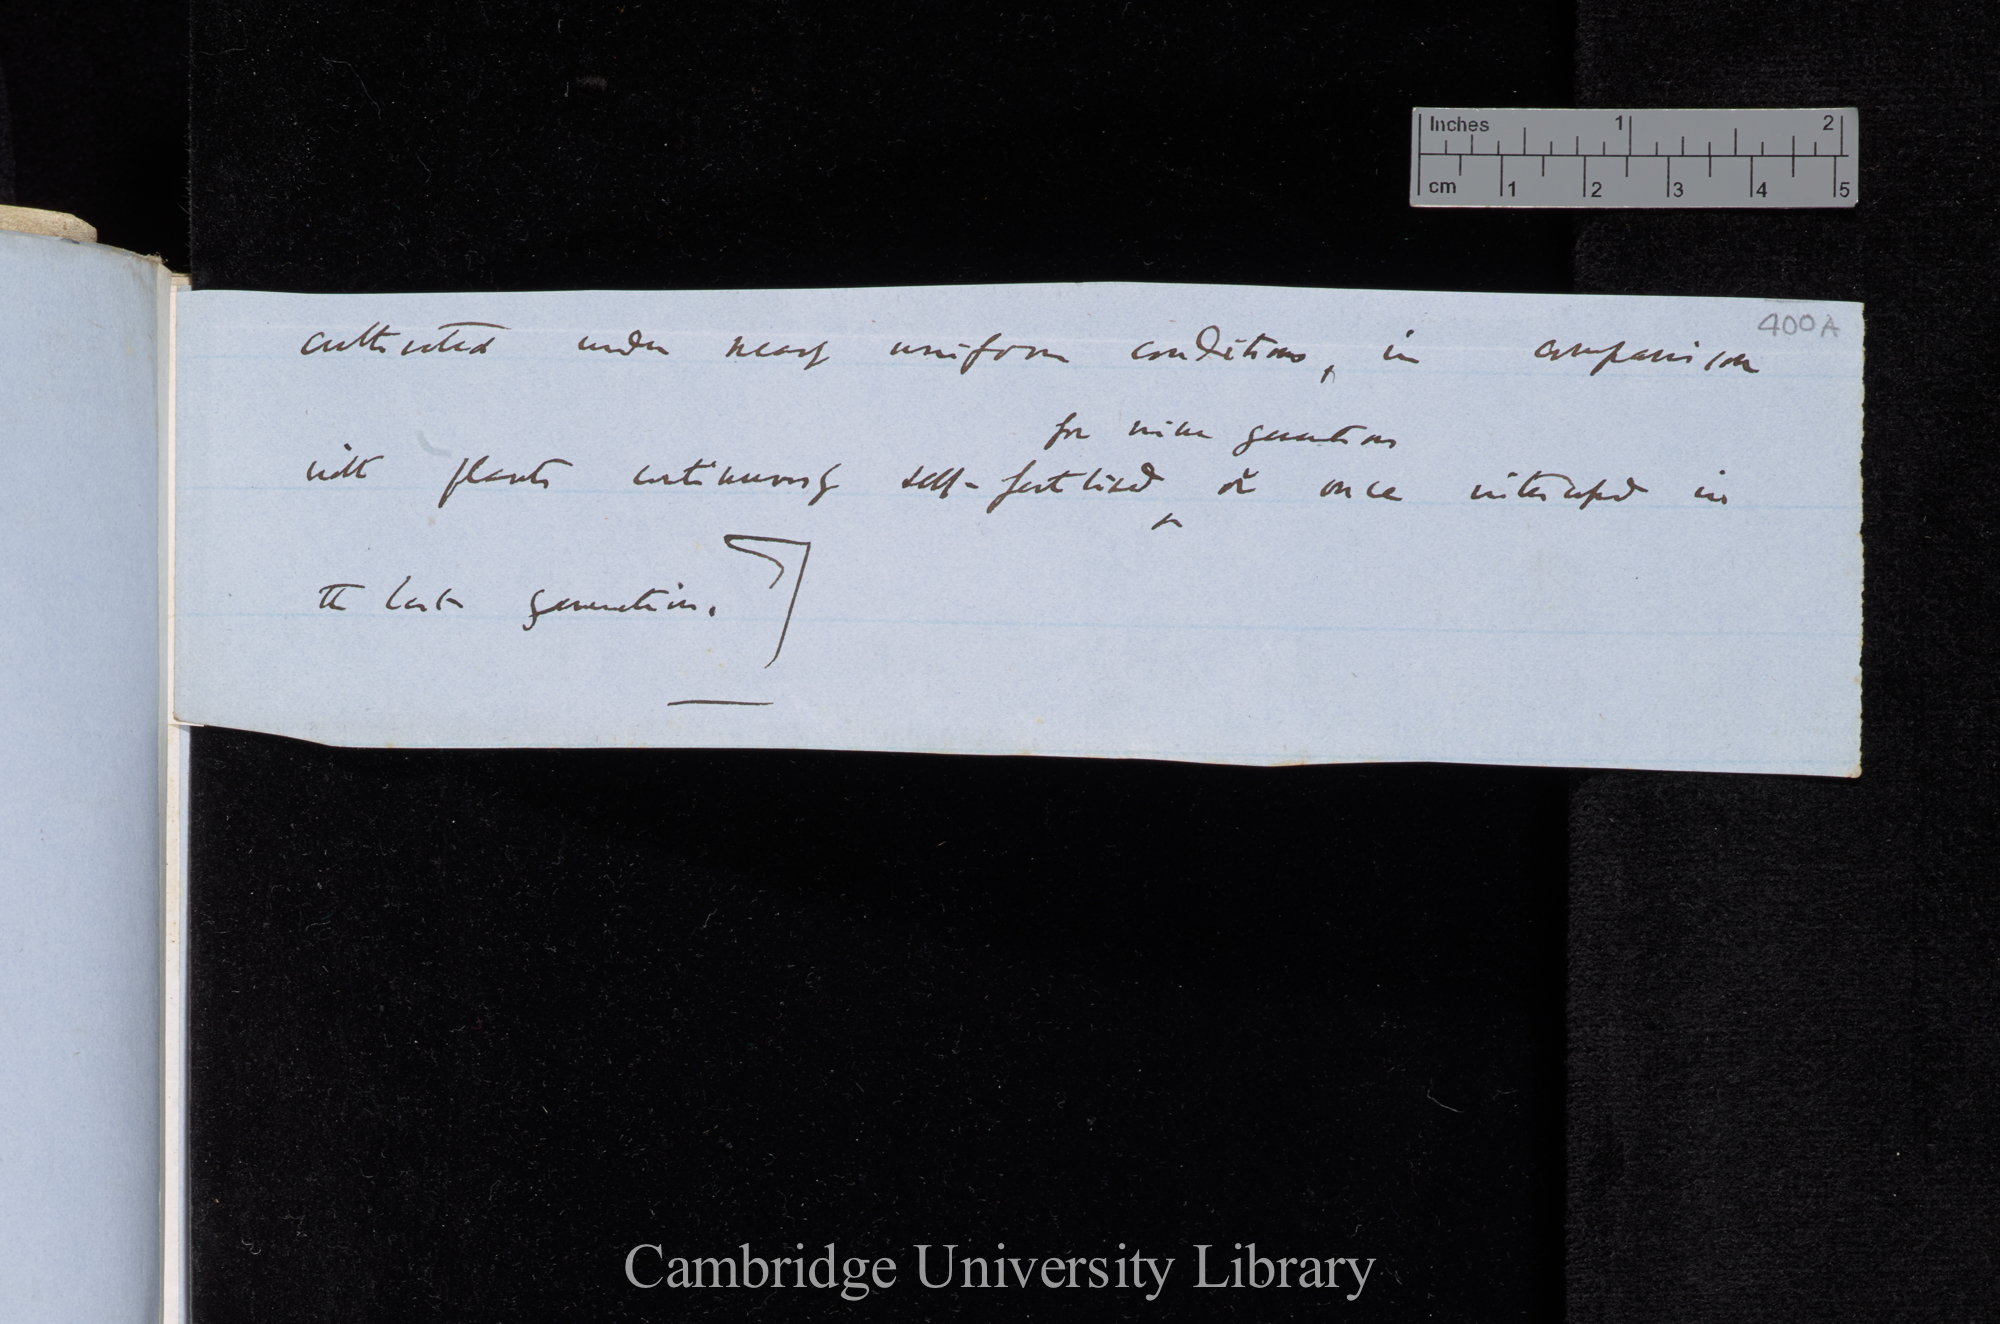 Inches 1 2
cm 1 2 3 4 5
400A
cultivated under nearly uniform conditions, in comparison
for nine generations
with plants continuously self-fertilised, & once intercrossed in
the last generation.]
Cambridge University Library